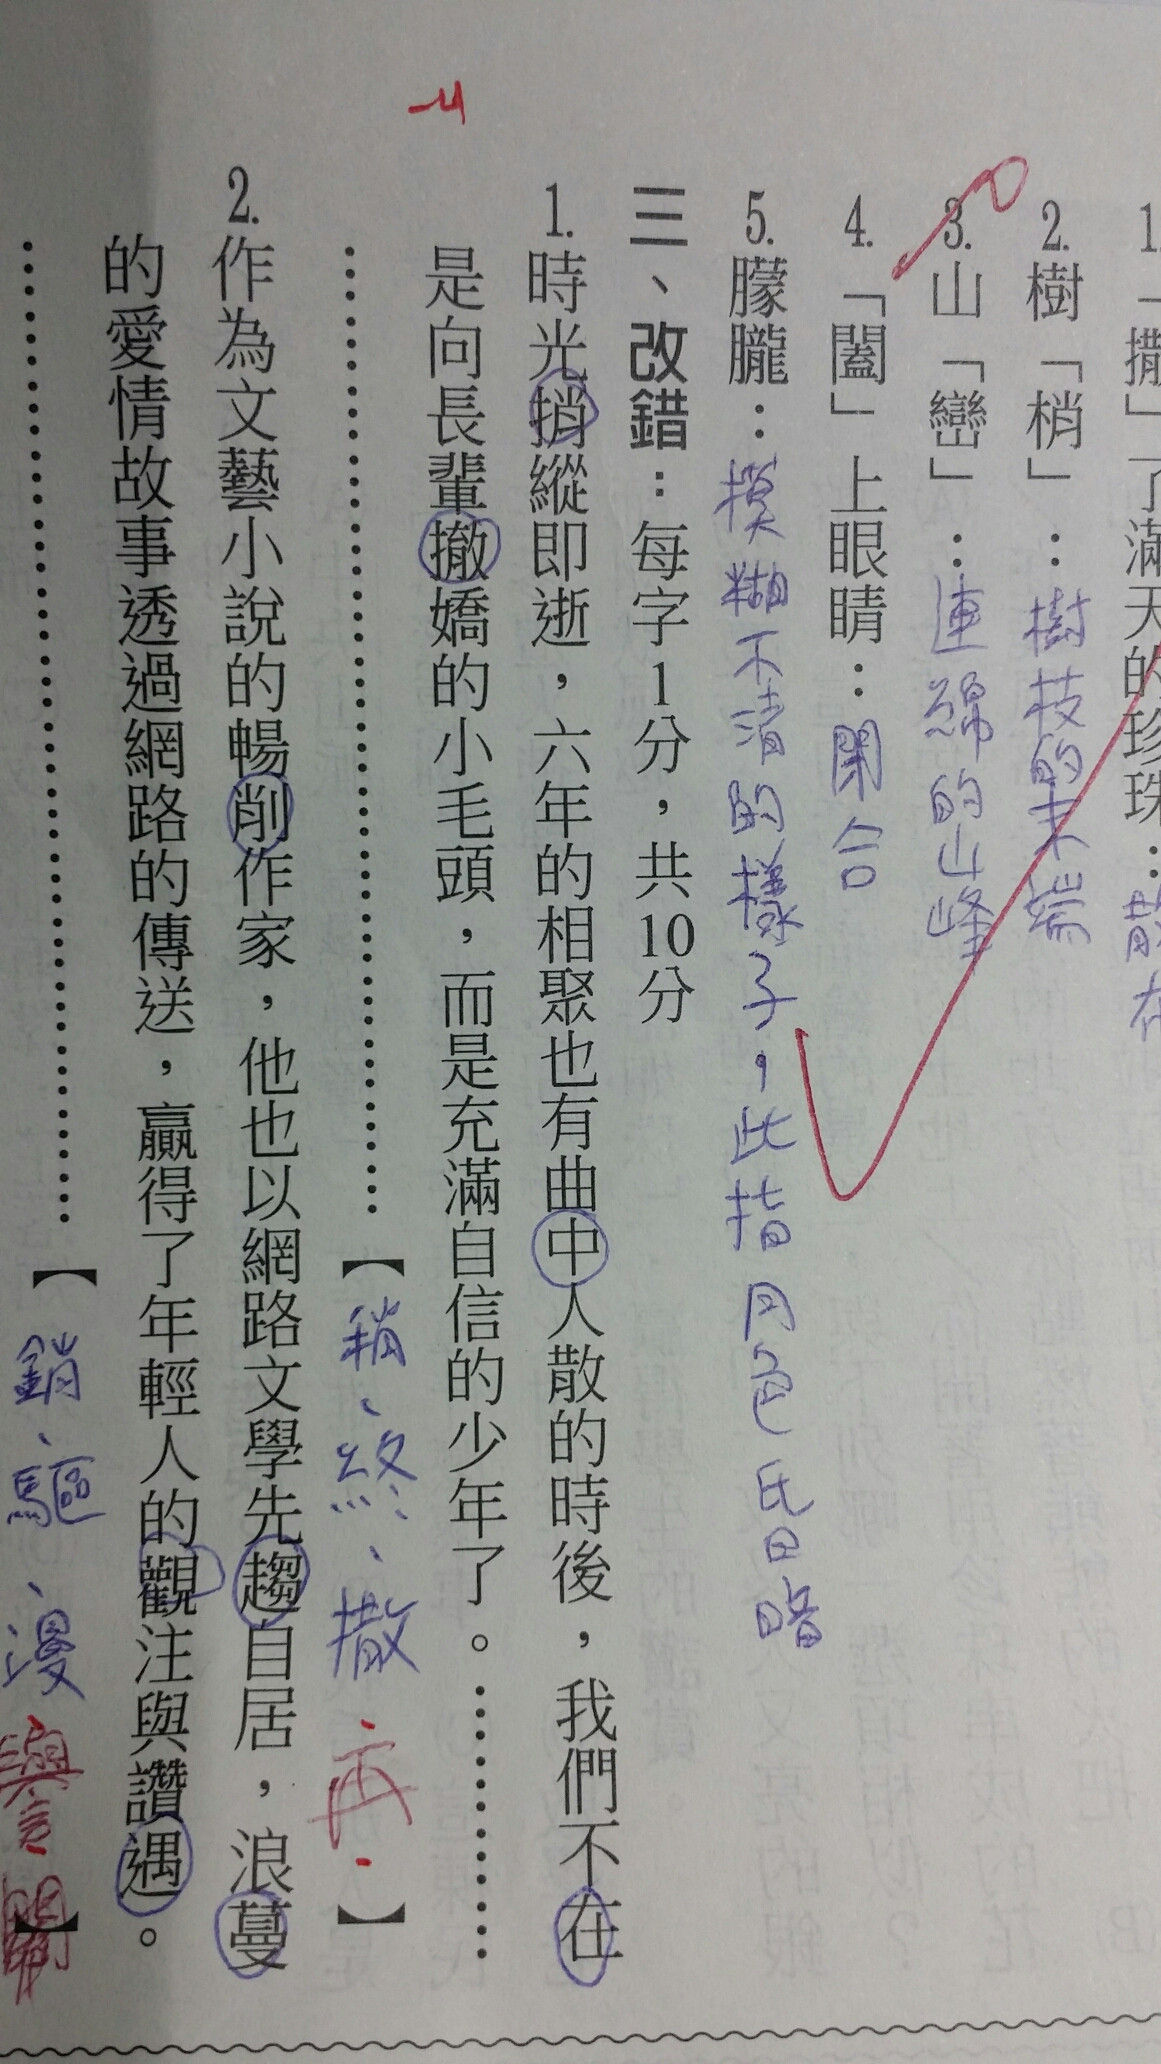 1.「撒」了滿天的珍珠：散在
2.樹「梢」：樹枝的末端
3.山「巒」：連綿的山峰
4.「闔」上眼睛：閉合
5.朦朧：模糊不清的樣子，此指月色昏暗
三、改錯：每字1分，共10分
1.時光捎縱即逝，六年的相聚也有曲中人散的時後，我們不在
是向長輩撤嬌的小毛頭，而是充滿自信的少年了。……………
……………【稍、終、撒、再、】
2.作為文藝小說的暢削作家，他也以網路文學先趨自居，浪蔓
的愛情故事透過網路的傳送，贏得了年輕人的觀注與讚遇。
……………【銷、驅、漫、譽 關】
-4